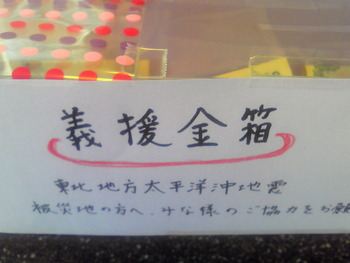 義援金箱
東北地方太平洋沖地震
被災地の方へ、みな様のご協力をお願